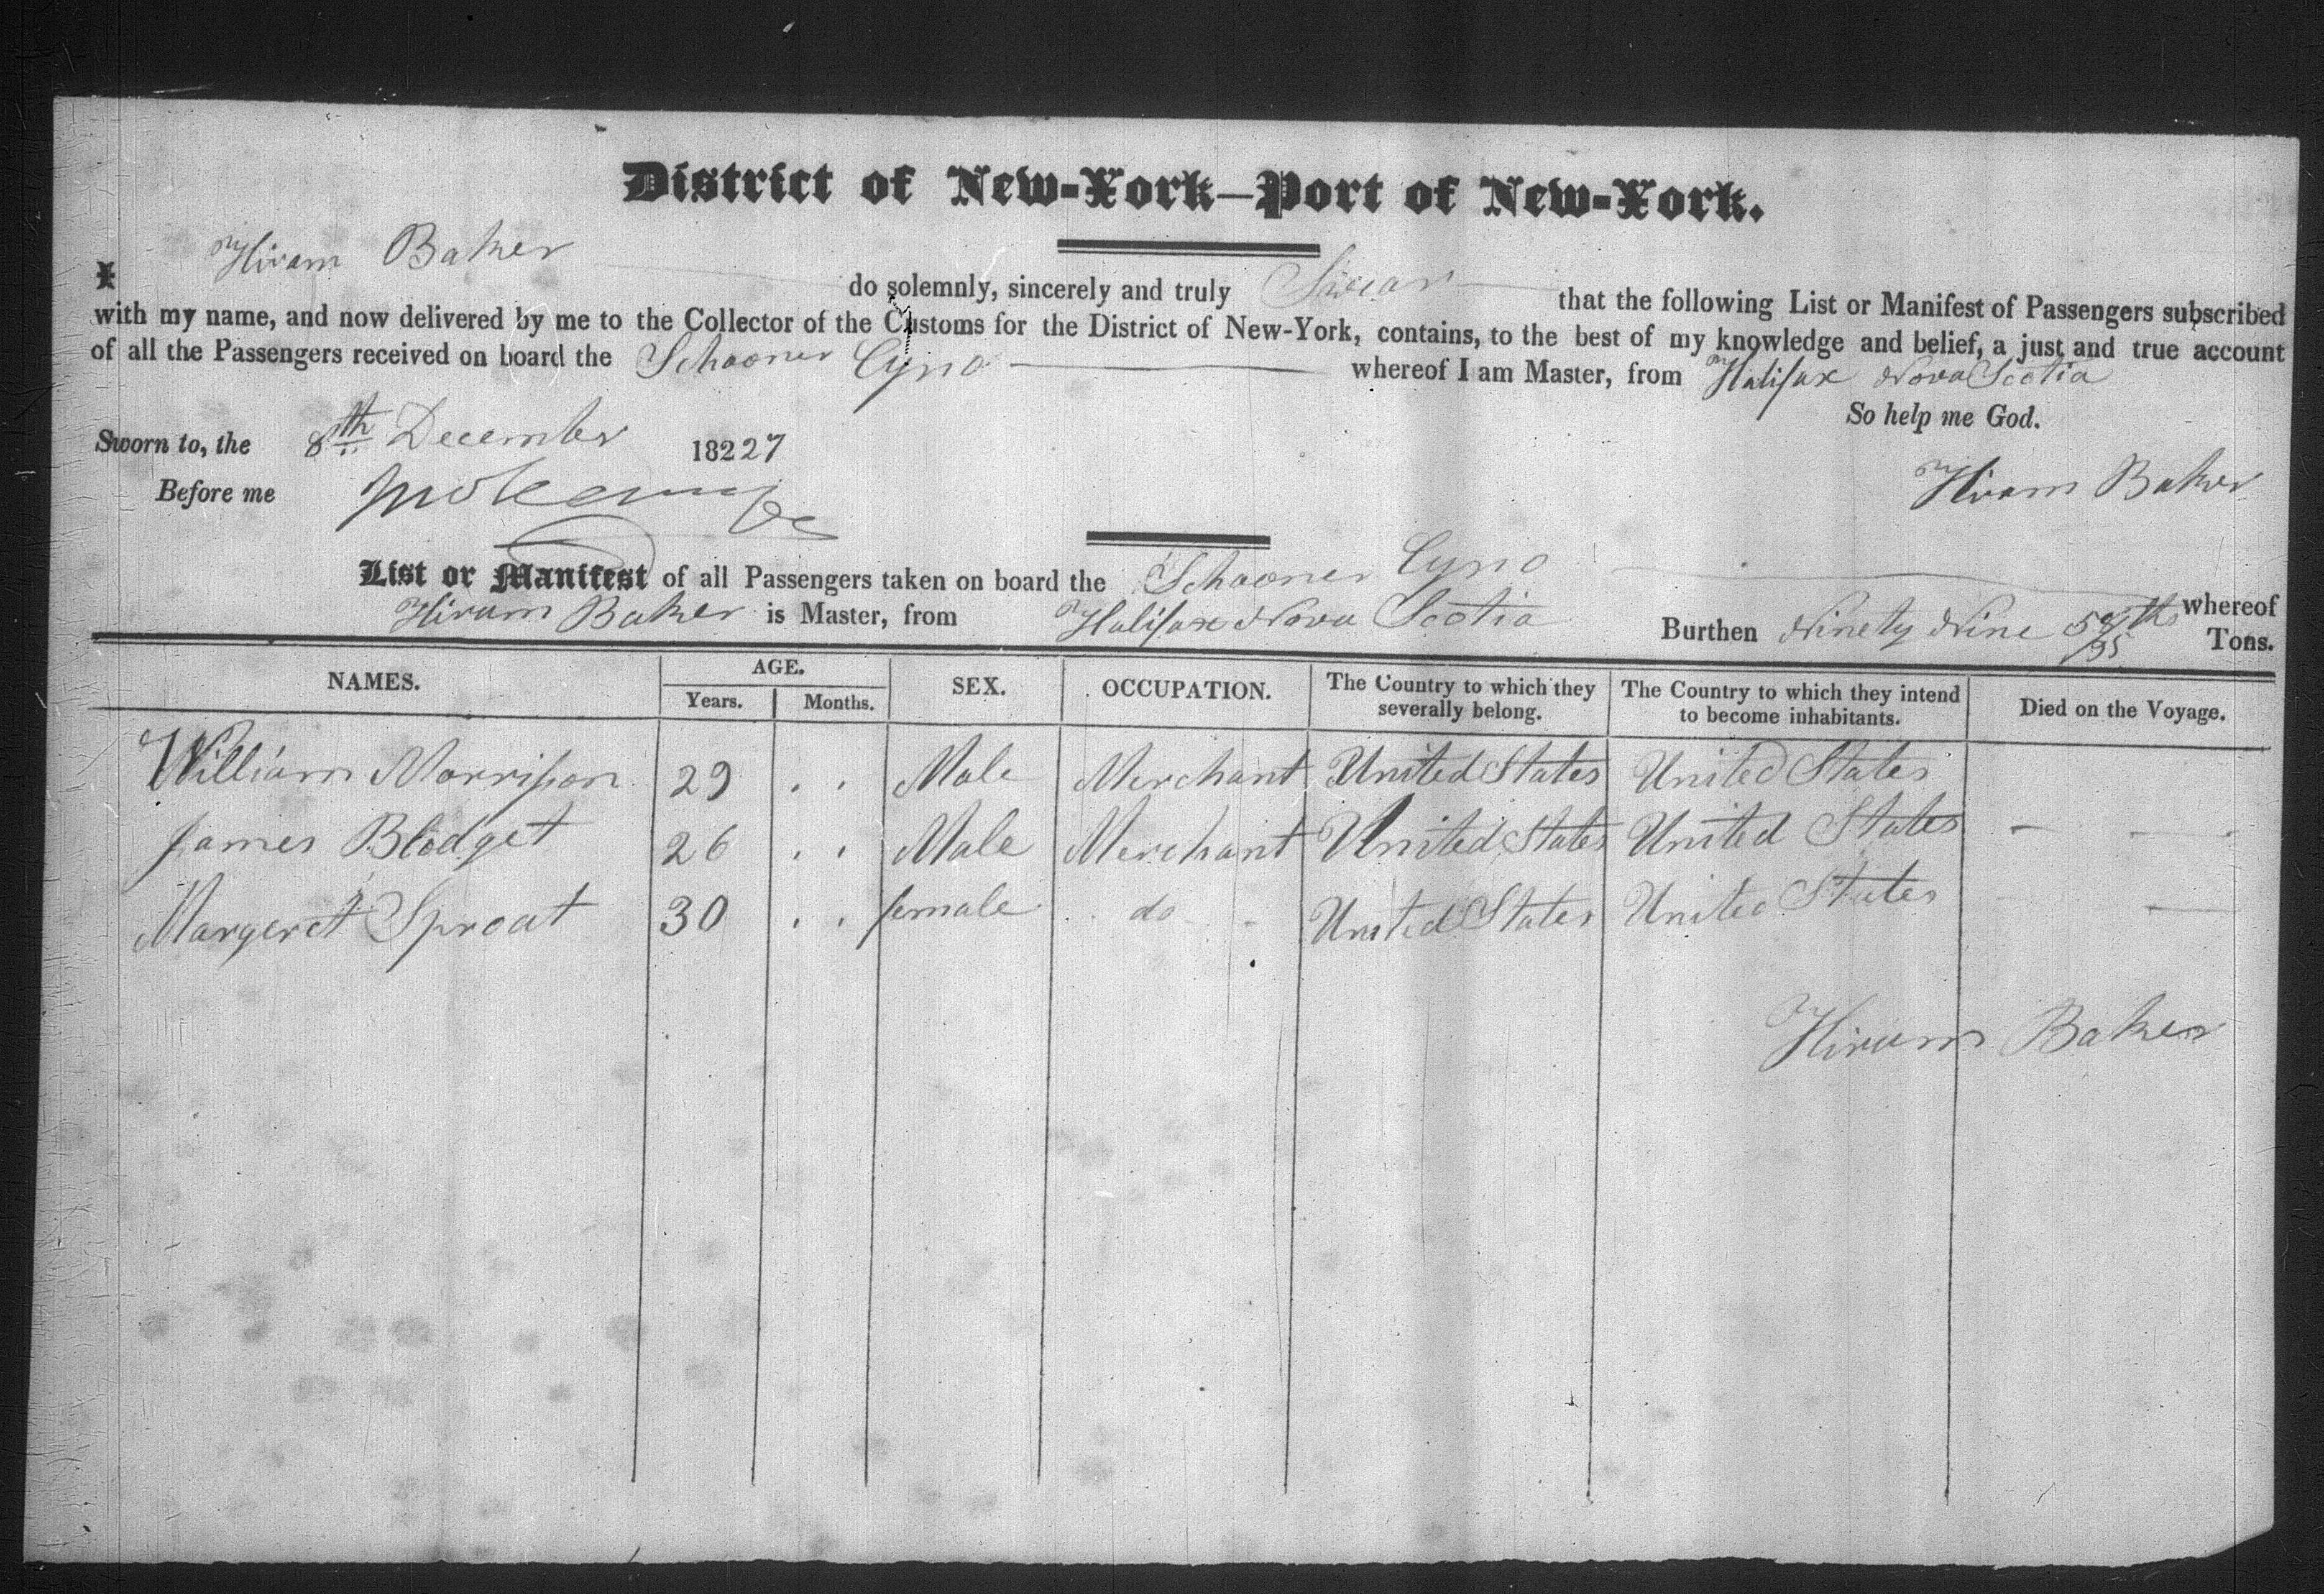 District of New-York—Port of New-York.
I Hiram Baker do solemnly, sincerely and truly Swear that the following List or Manifest of Passengers subscribed
with my name, and now delivered by me to the Collector of the Customs for the District of New-York, contains, to the best of my knowledge and belief, a just and true account
of all the Passengers received on board the Schooner Cyno whereof I am Master, from Halifax Nova Scotia
So help me God.
Sworn to, the 8th December 18227
Hiram Baker
Before me
List or Manifest of all Passengers taken on board the Schooner Cyno whereof
Hiram Baker is Master, from Halifax Nova Scotia Burthen Ninety Nine /95ths Tons.
NAMES. AGE. SEX. OCCUPATION. The Country to which they severally belong. The Country to which they intend to become inhabitants. Died on the Voyage.
Years. Months.
William Morrison 29 . . Male Merchant United States United States
James Blodget 26 . . Male Merchant United States United States — —
Margeret Sproat 30 . . female do - United States United States —
Hiram Baker